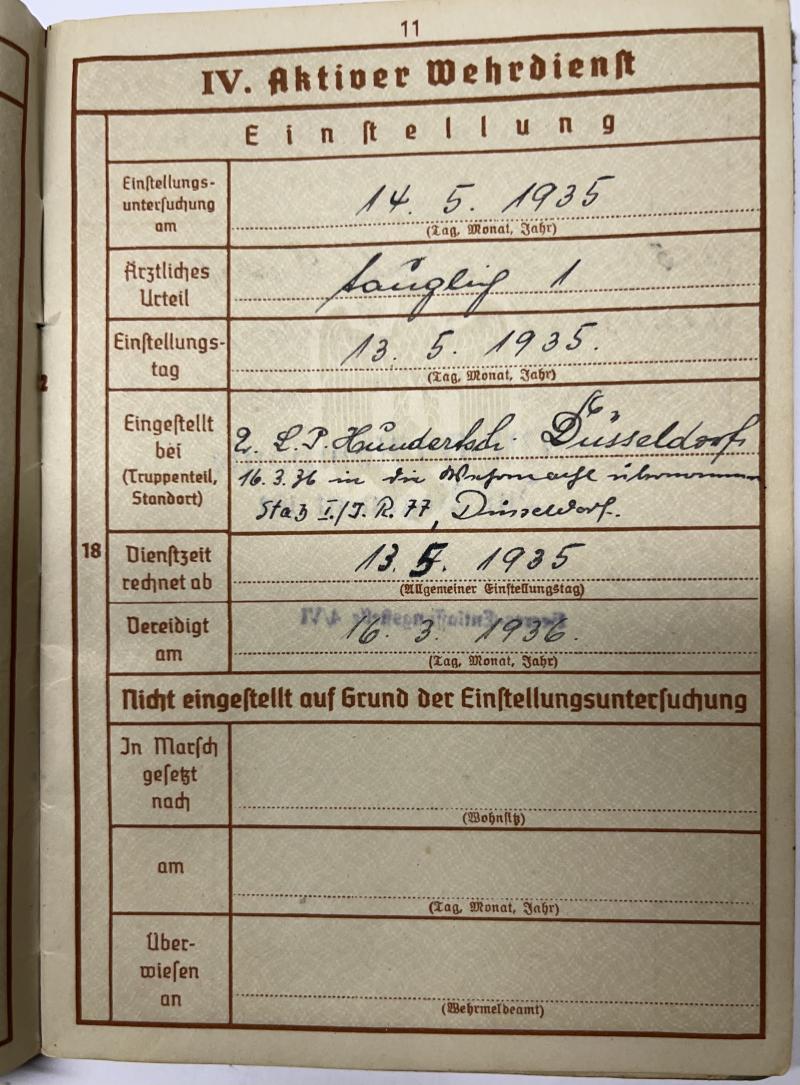 11
IV. Aktiver Wehrdienst
Einstellung
Einstellungs-
untersuchung
am
14. 5. 1935
(Tag, Monat, Jahr)
Ärztliches
Urteil
tauglich 1
Einstellungs-
tag
13. 5. 1935.
(Tag, Monat, Jahr)
Eingestellt
bei
(Truppenteil,
Standort)
2. L.P. Hundertsch. Düsseldorf
16. 3. 36 in die Wehrmacht übernommen
Stab I./J. R. 77, Düsseldorf.
18
Dienstzeit
rechnet ab
13. 5. 1935
(Allgemeiner Einstellungstag)
Vereidigt
am
16. 3. 1936.
(Tag, Monat, Jahr)
Nicht eingestellt auf Grund der Einstellungsuntersuchung
In Marsch
gesetzt
nach
(Wohnsitz)
am
(Tag, Monat, Jahr)
Über-
wiesen
an
(Wehrmeldeamt)